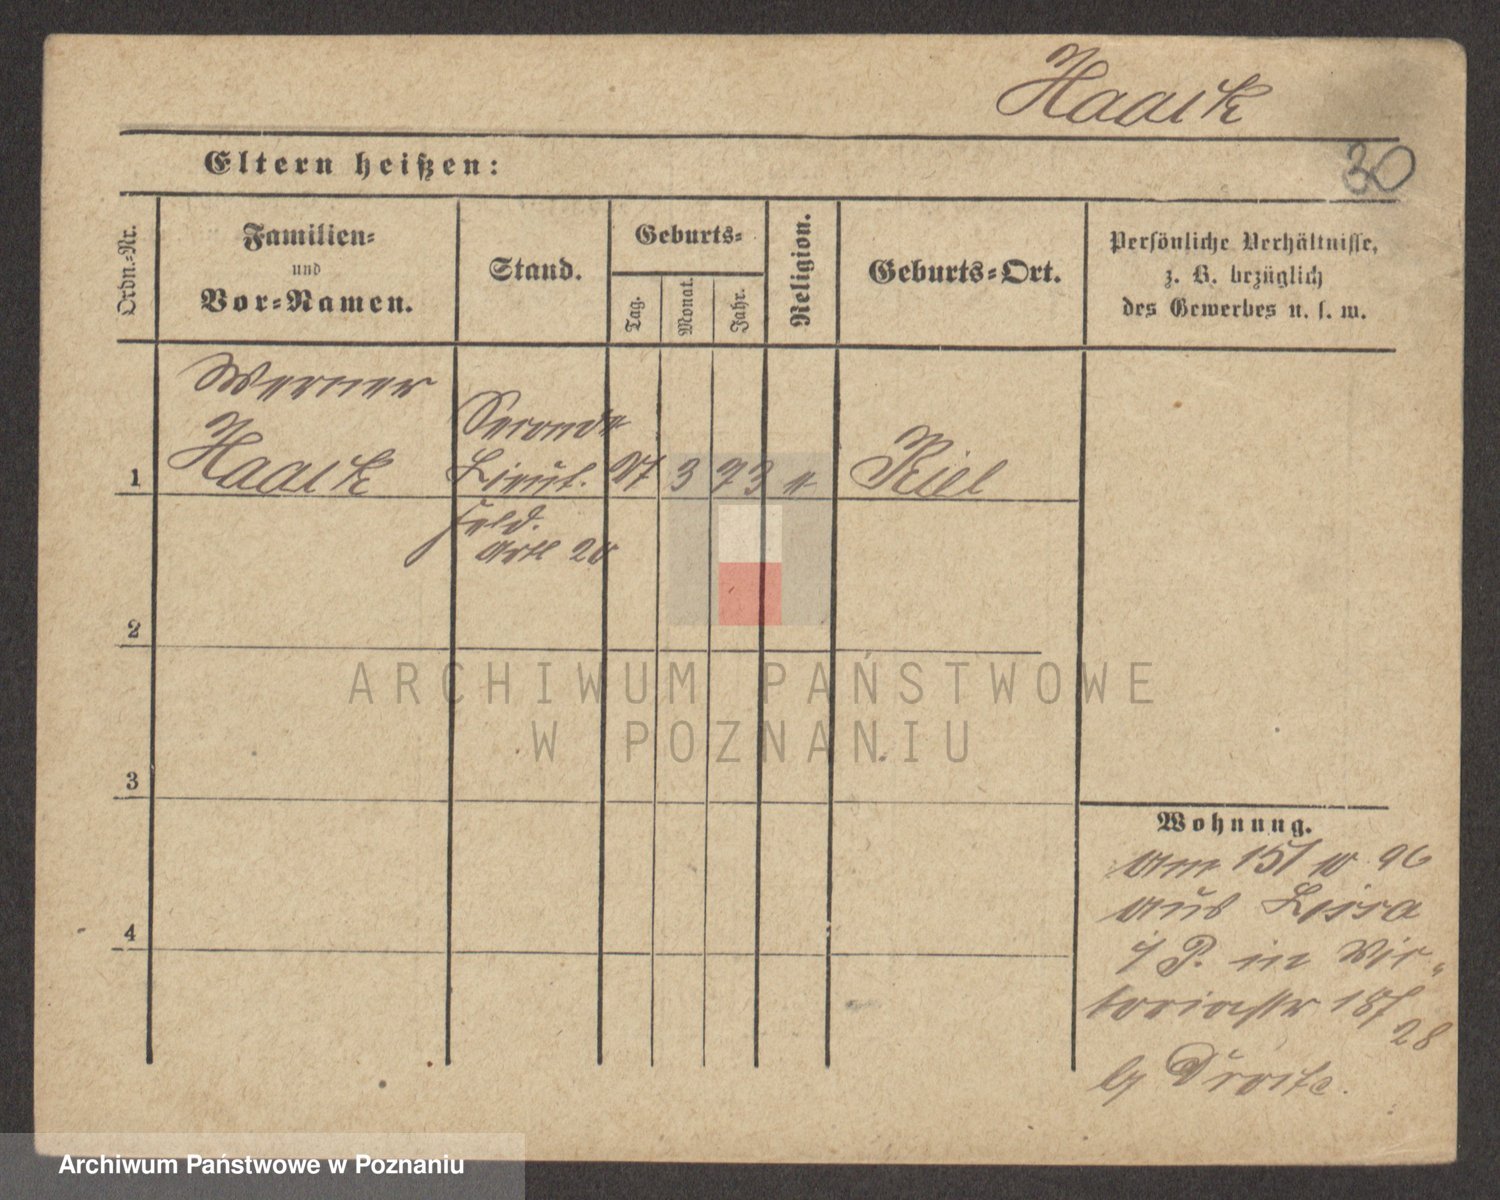 Haack
30
Eltern heißen:
Ordn.-Nr.
Familien-
und
Vor-Namen.
Stand.
Geburts-
Tag.
Monat.
Jahr.
Religion.
Geburts-Ort.
Persönliche Verhältnisse,
z. B. bezüglich
des Gewerbes u. s. w.
Werner
Haack
Seconde
Lieut.
Feld.
Artl 20
1
27 3 73
Kiel
2
3
4
Wohnung.
am 15/10 96
aus Lissa
i/P. in Vic-
toriastr 18/
28
by
ARCHIWUM PAŃSTWOWE
W POZNANIU
Archiwum Państwowe w Poznaniu